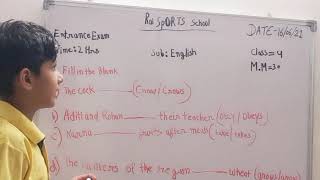 Rd SpORTS School
Entrance Exam DATE-16/06/21
Time: 2 Hrs Sub: English Class = 4
M.M = 30
Fill in the Blank
The Cock (Crow/Crows)
b) Aditi and Rohan their teacher (obey/obeys)
c) fruits after meals (take/takes)
d) The farmers of the region wheat (grows/grow)